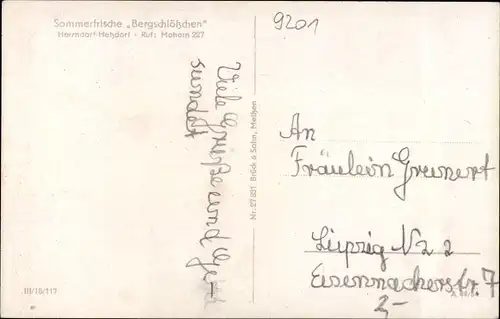 9201
Sommerfrische „Bergschlößchen"
Herrndorf-Hetzdorf · Ruf: Mohorn 227
Viele Grüße und Ge-
sendet
Nr. 27 021 Brück & Sohn, Meißen
An
Fräulein Greunert
Leipzig N 22
Eisennacherstr 7
2,-
III/18/117